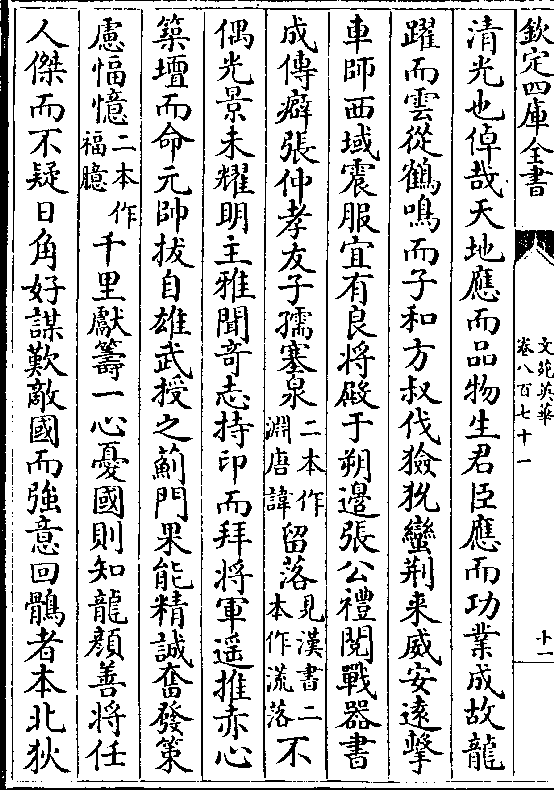 欽定四庫全書
文苑英華
卷八百七十一
十一
清光也倬哉天地應而品物生君臣應而功業成故龍
躍而雲從鶴鳴而子和方叔伐獫狁蠻荆来威安逺擊
車師西域震服宜有良將殿于朔邉張公禮閲戰器書
成傳癖張仲孝友子孺塞泉二本作淵唐諱留落見漢書二本作流落不
偶光景未耀明主雅聞竒志持印而拜將軍遥推赤心
築壇而命元帥拔自雄武授之薊門果能精誠奮發策
慮愊憶二本作福臆千里獻籌一心憂國則知龍顔善將任
人傑而不疑日角好謀歎敵國而强意回鶻者本北狄